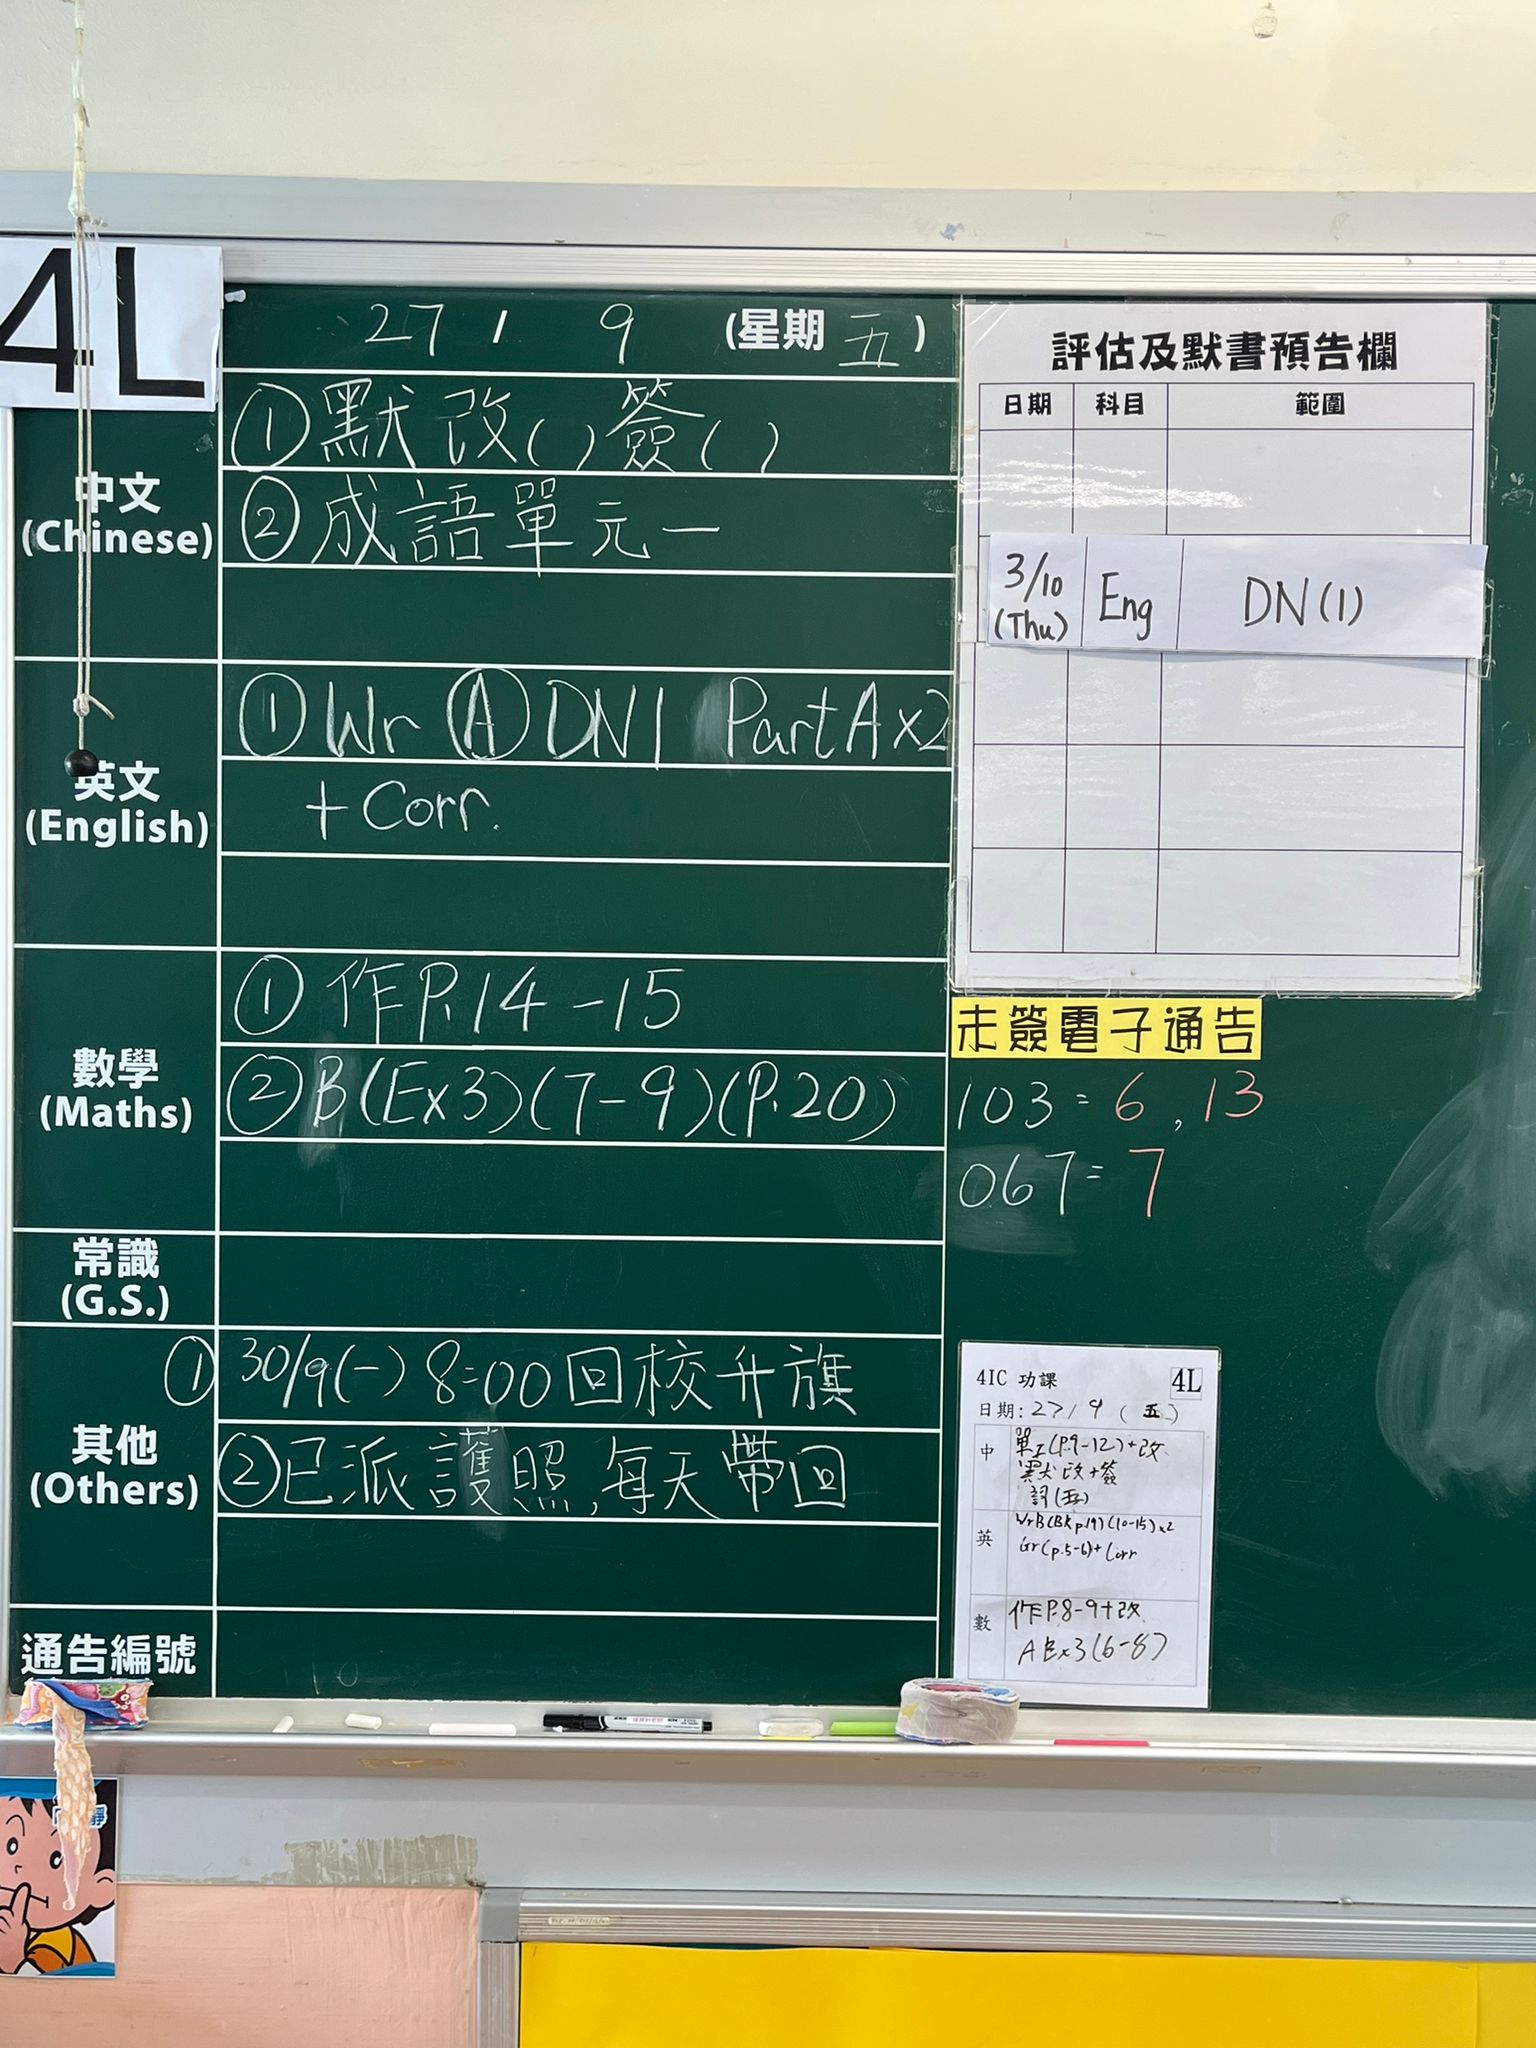 4L
27 / 9 (星期五)
中文
(Chinese)
①默改( )簽( )
②成語單元一
英文
(English)
①Wr Ⓐ DN1 Part A x2
+ Corr.
數學
(Maths)
①作P.14-15
②B(Ex3)(7-9)(P.20)
常識
(G.S.)
其他
(Others)
①30/9(一) 8:00回校升旗
②已派護照,每天帶回
通告編號
評估及默書預告欄
日期 科目 範圍
3/10
(Thu) Eng DN(1)
未簽電子通告
103 = 6, 13
067 = 7
4IC 功課 4L
日期: 27/9 (五)
中 單工(P.9-12)+改
默改+簽
詞(五)
英 WrB(Bk p.19)(10-15)x2
Gr(p.5-6)+Corr
數 作P.8-9+改
A Ex3(6-8)